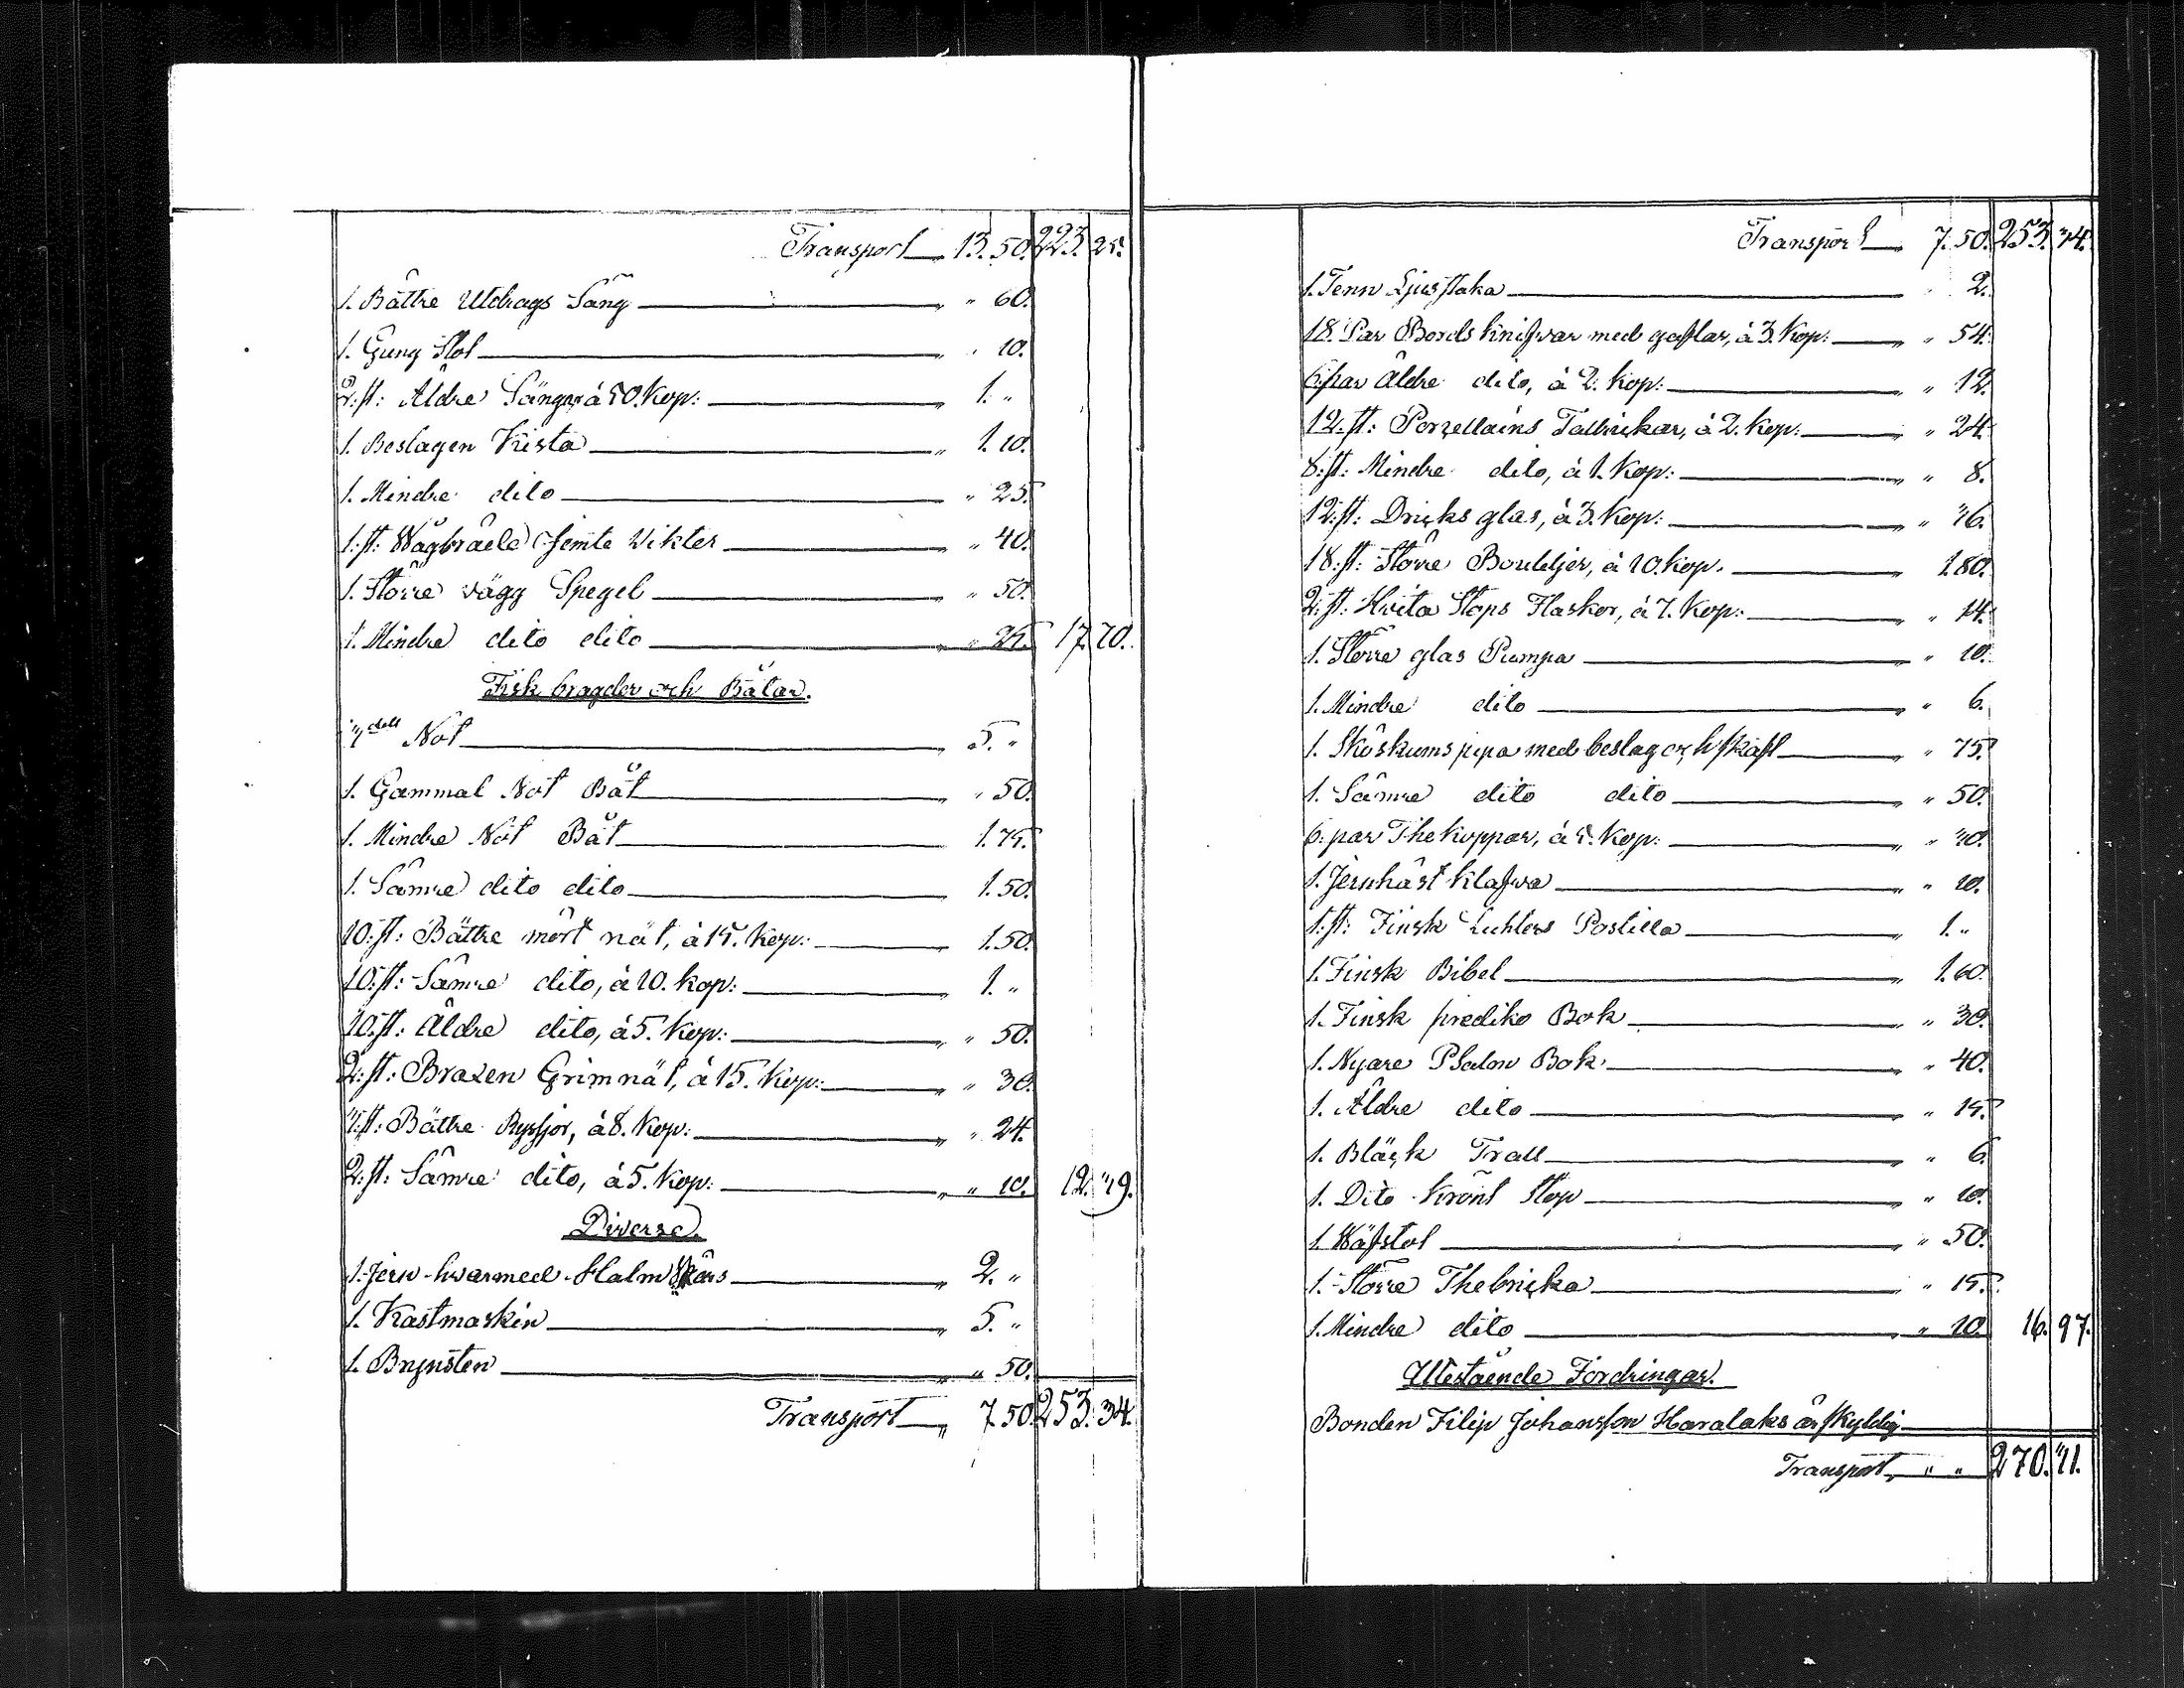 Transport 13. 50. 223. 25.
1. Bättre Utdrags Säng " 60.
1. Gung Stol " 10.
2. st: Äldre Sängar á 50. Kop: 1. "
1. Beslagen Kista 1. 10.
1. Mindre dito " 25.
1. st: Wågbräde Jemte Wikter " 40.
1. Större vägg Spegel " 50.
1. Mindre dito dito " 25. 17. 70.
Fisk bragder och Båtar.
Not 5. "
1. Gammal Not Båt " 50.
1. Mindre Not Båt 1. 75.
1. Sämre dito dito 1. 50.
10: st: Bättre mört nät, á 15. Kop: 1. 50.
10: st: Sämre dito, á 10. kop: 1. "
10: st: Äldre dito, á 5. Kop: " 50.
2: st: Braxen Grimnät, á 15. Kop: " 30.
3: st: Bättre Ryssjor, á 8. Kop: " 24.
2: st: Sämre dito, á 5. Kop: " 10. 12. 39.
Diverse.
1. Jern-hwarmed Halm Skärs 2. "
1. Kastmaskin 5. "
1. Brynsten " 50.
Transport 7. 50. 253. 34.
Transport 7. 50. 253. 34.
1. Tenn Ljusstaka 2.
18. Par Bords Knifvar med gafflar, á 3. Kop: " 54.
6. par Äldre dito, á 2. kop: " 12.
12: st: Porzellains Tallrickar, á 2. Kop: " 24.
8: st: Mindre dito, á 1. Kop: " 8.
12: st: Dricks glas, á 3. Kop: " 36.
18: st: Större Bouteljer, á 10. Kop. 1. 80.
2: st: Hvita Stops Flaskor, á 7. Kop: " 14.
1. Större glas Pumpa " 10.
1. Mindre dito " 6.
1. Sköskums pipa med beslag och skaft " 75.
1. Sämre dito dito " 50.
6. par The Koppar, á 5. Kop: " 30.
1. Jernhäst Klafwa " 10.
1. st: Finsk Postilla 1. "
1. Finsk Bibel 1. 60.
1. Finsk prediko Bok " 30.
1. Nyare Psalm Bok " 40.
1. Äldre dito " 15.
1. Bläck Tratt " 6.
1. Dito Krönt Stop " 10.
1. Wäfstol " 50.
1. Större Thebricka " 15.
1. Mindre dito " 10. 16. 97.
Utestående Fordringar.
Bonden Filip Johansson Haralaks är skyldig
Transport " " 270. 31.